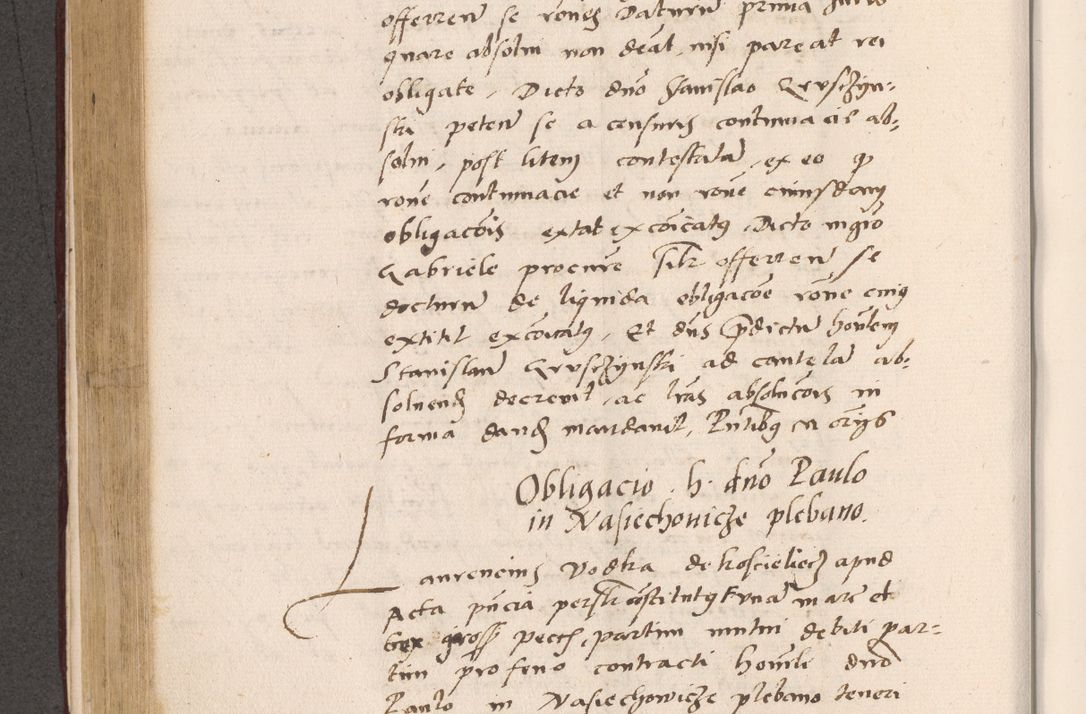 offerren se rones daturum prima Juris
quare absolui non deat, nisi pareat rei
obligate, Dicto dno Stanislao Gruschyn-
ski peten se a censuris contumacie ab-
solui, post litem contestatam, ex eo qp
rone contumacie et non rone eiusdem
obligacois extat excoicatg, Dicto mgro
Gabriele procure silr offerren se
docturum de liquida obligacoe rone cuig
extitit excoicatg, Et dns pdictum honlem
Stanislaum Gruschynski ad cautelam ab-
soluend decreuit, ac lras absolucois in
forma dand mandauit, Pntibg
Obligacio h. dno Paulo
in Nasiechouicze plebano.
Laurencius Vodka de Koscieliecz apud
Acta pncia personlr constitutg Vnam marc et
sex gross pecces, partim mutui debiti par-
tim pro feno contracti honli dno
Paulo in Nasiechowicze plebano teneri